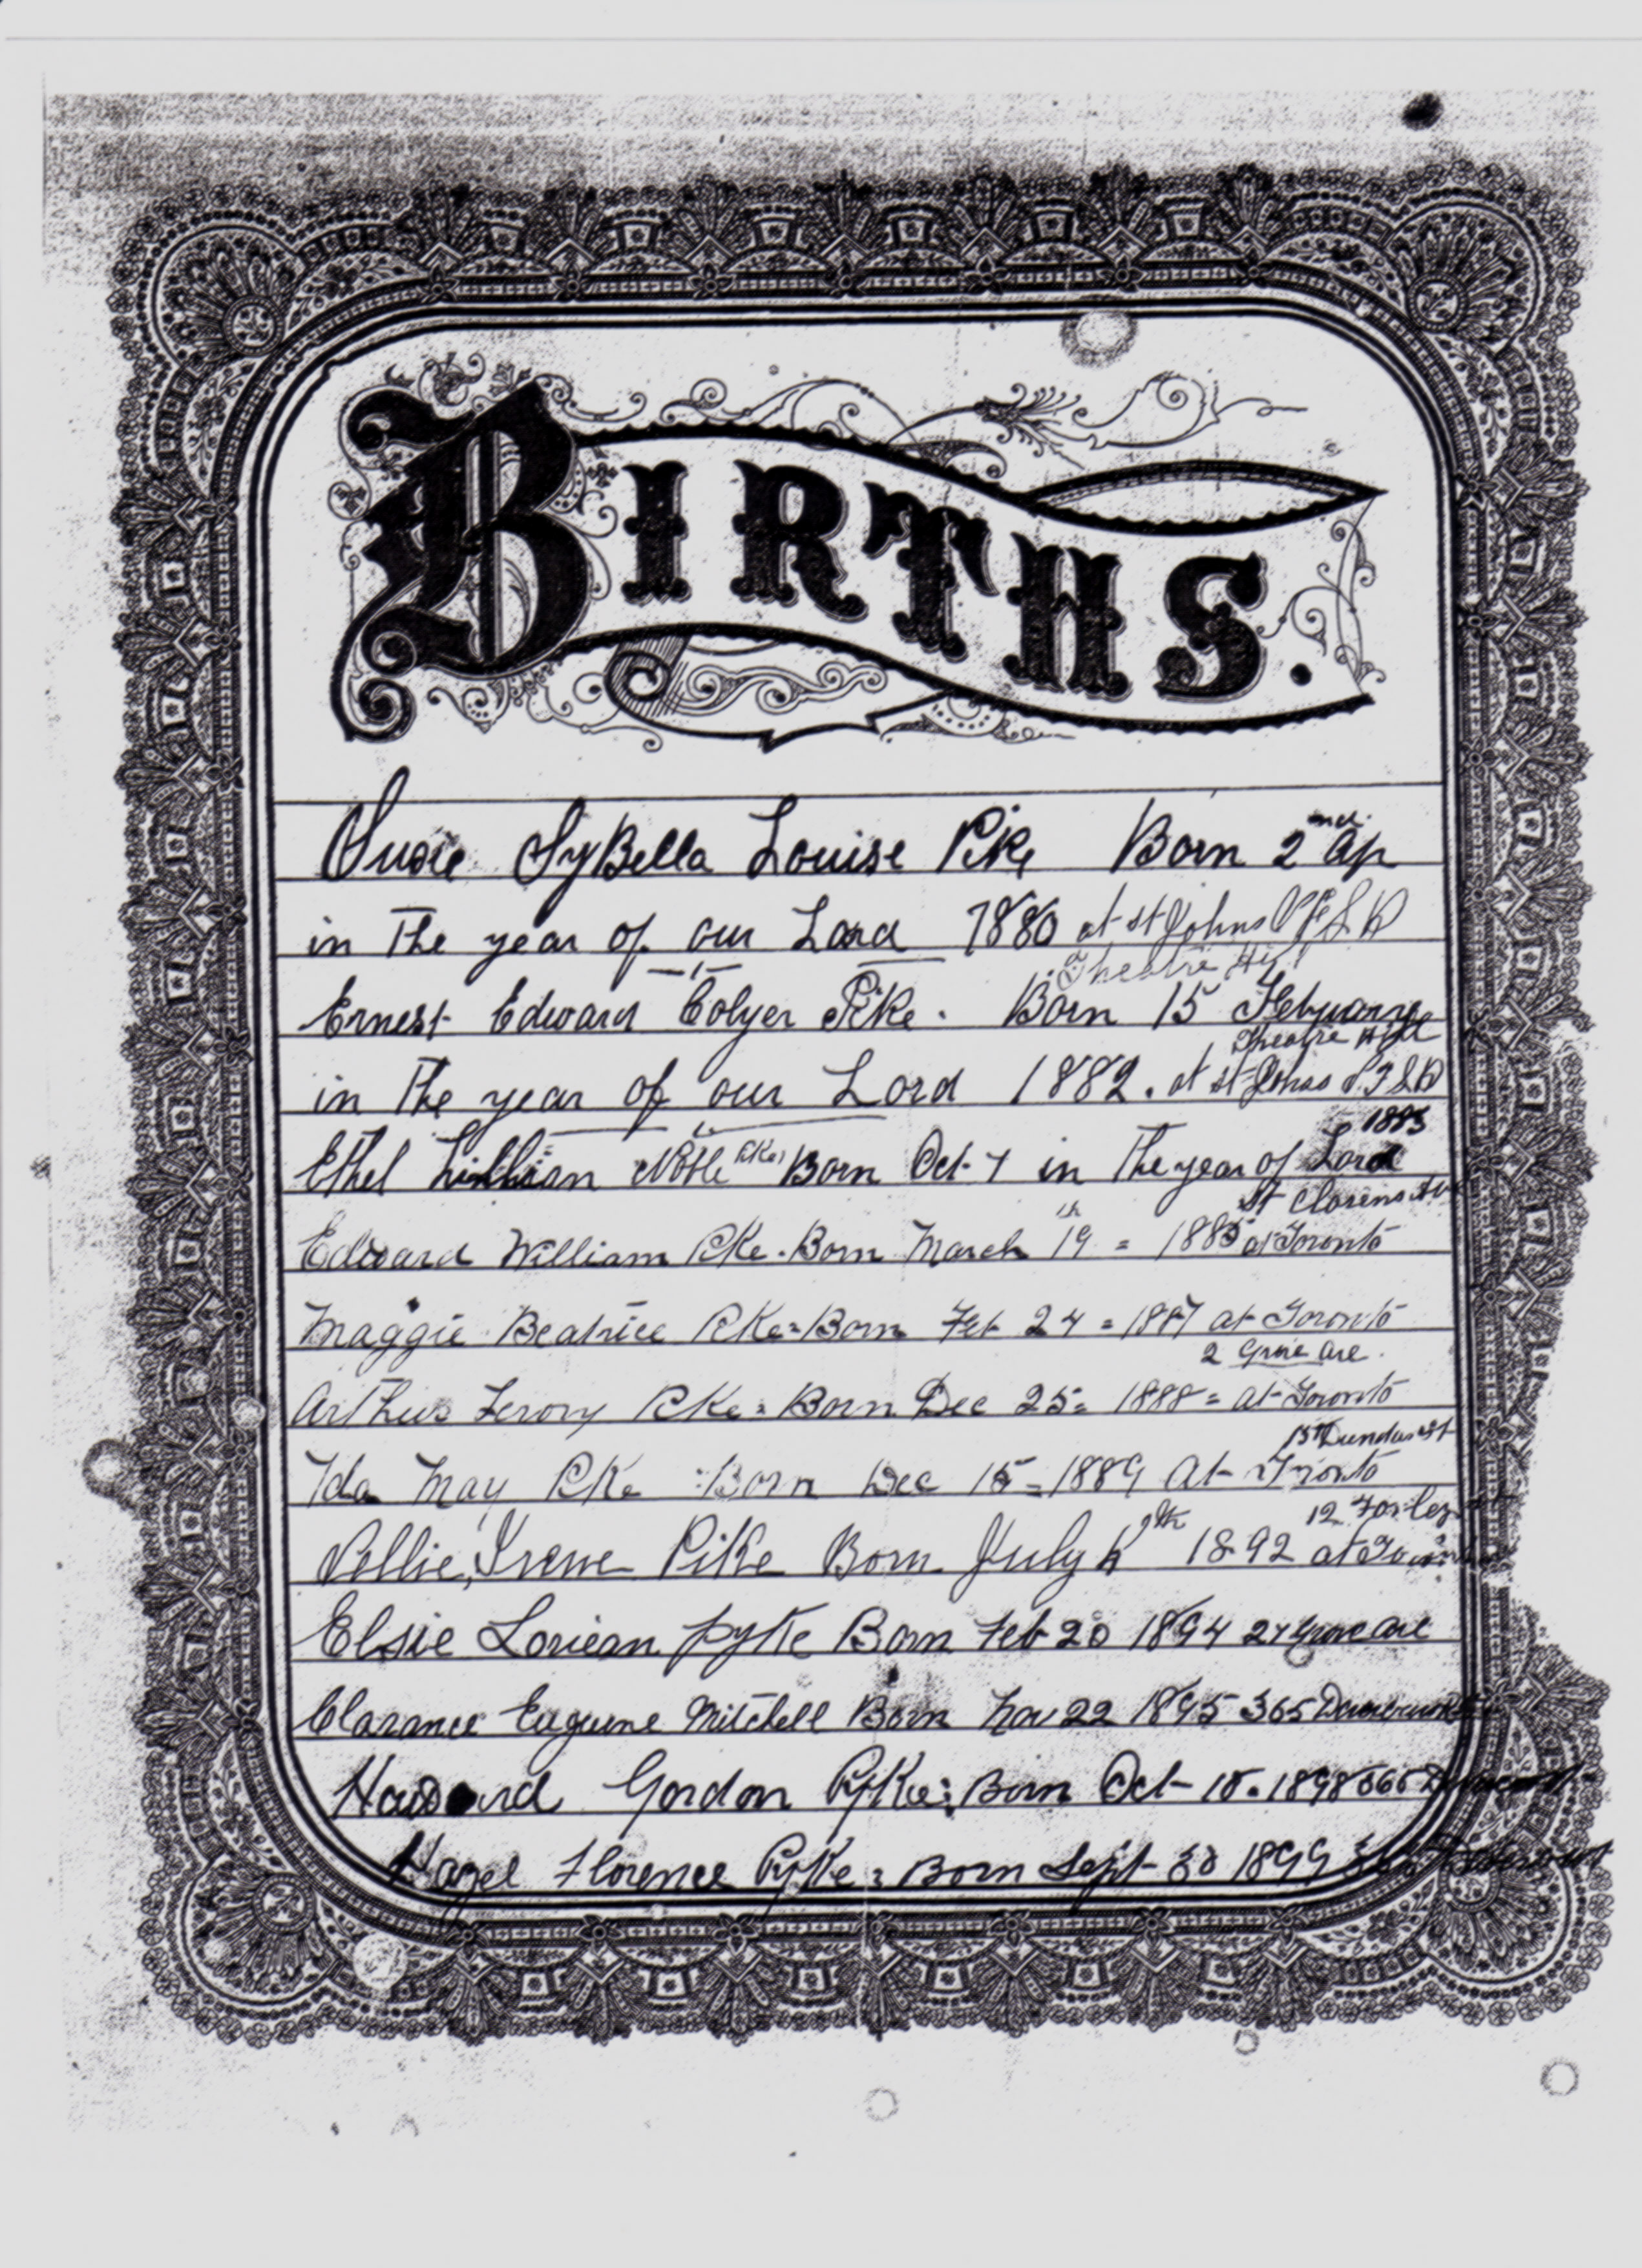 BIRTHS.
Susie SyBella Louise Pike Born 2nd Ap
in The year of our Lord 1880 at St Johns
Theatre Hill
Ernest Edward Colyer Pike. Born 15 Febuary
Theatre Hill
in The year of our Lord 1882. at St Johns
1883
Ethel Lillian Noble Pike Born Oct 7 in The year of Lord
St Clarens Ave
Edward William Pike. Born March 19th = 1885 at Toronto
Maggie Beatrice Pike = Born Feb 24 = 1887 at Toronto
2 Grove Ave.
Arthur Leroy Pike = Born Dec 25 = 1888 = at Toronto
Dundas St
Ida May Pike : Born Dec 15 = 1889 At Toronto
12 Foxley
Nellie, Irene Pike Born July 1892 at
Elsie Loriean Pyke Born Feb 20 1894 27 Grove Ave
Clarance Eugune Mitchell Born Nov 22 1895 365
Howard Gordon Pyke: Born Oct 18. 1898
Hazel Florence Pyke: Born Sept 30 1899